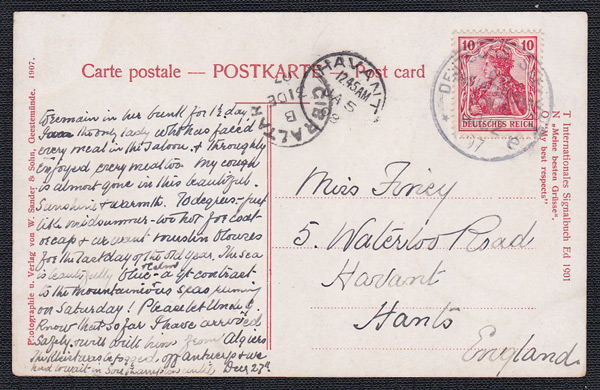 Carte postale — POSTKARTE — Post card
Photographie u. Verlag von W. Sander & Sohn, Geestemünde. 1907.
to remain in her bunk for 1½ day.
I was the only lady who has faced
every meal in the Saloon, & throughly
enjoyed every meal too. My cough
is almost gone in this beautiful
Sunshine & warmth. 70 degrees - just
like midsummer - too hot for coat
or cap & we want muslin blouses
for the last day of the old year. The sea
is beautifully calm blue - a gt contrast
to the mountainious seas running
on Saturday! Please let Uncle
know that so far I have arrived
Safely. will write him from Algiers
The Meistur was fogged off Antwerp & we
had to wait in Southampton until
Decr 27th
HAVANT
12.45AM
JA 5
08
GIBRALTAR
B
DE 31
07
10 10
DEUTSCHES REICH
DEU
07
T Internationales Signalbuch Ed 1901
N „Meine besten Grüsse".
O „My best respects"
Miss Finey
5. Waterloo Road
Havant
Hants
England.